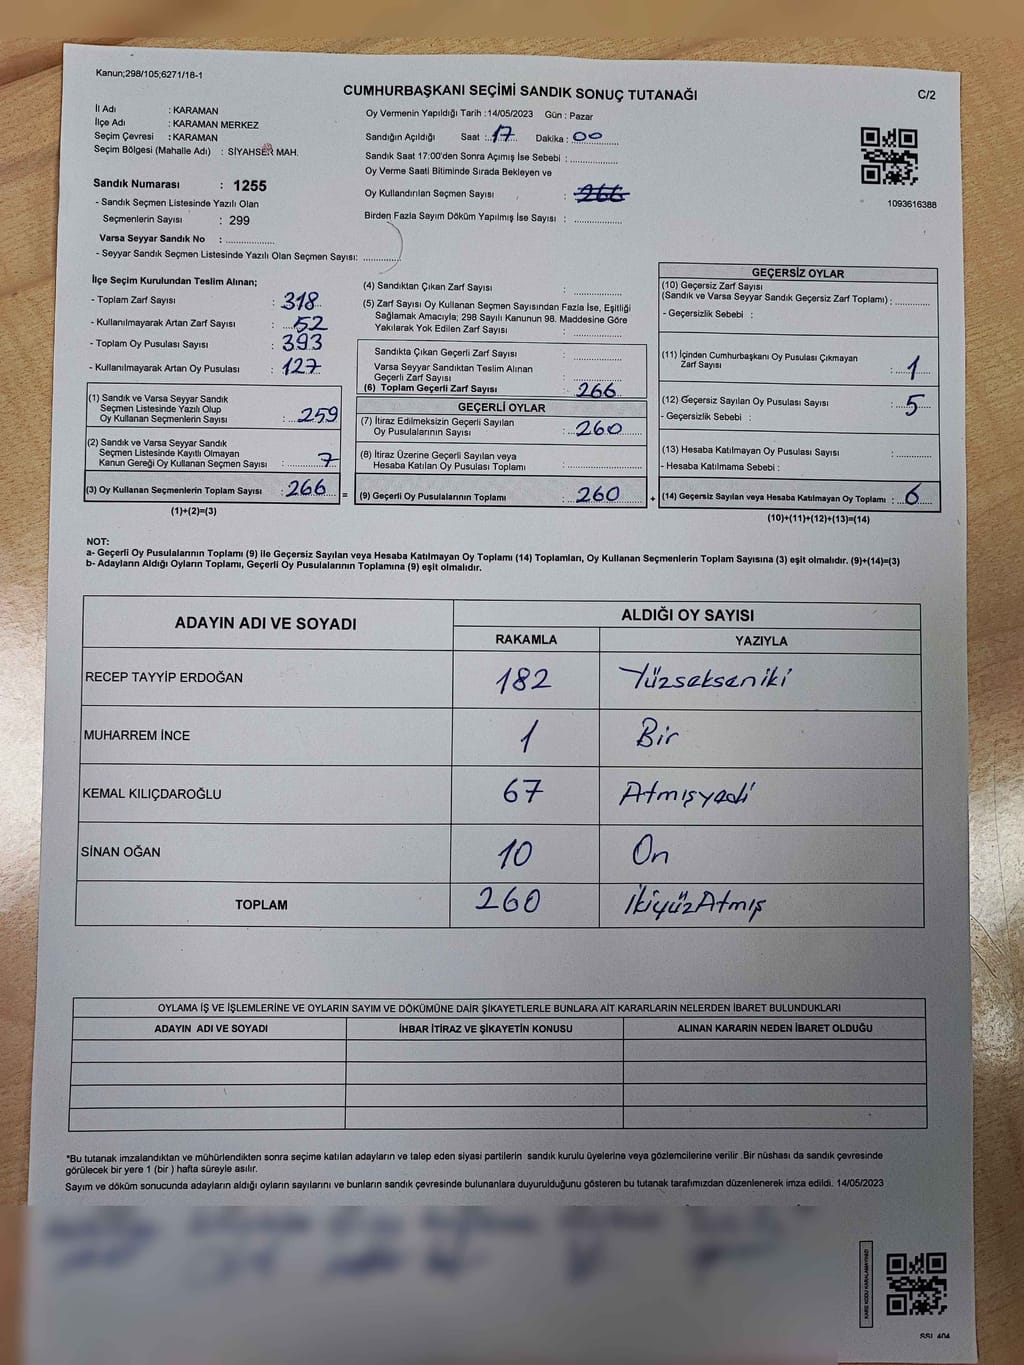 Kanun;298/105;6271/18-1
CUMHURBAŞKANI SEÇİMİ SANDIK SONUÇ TUTANAĞI
C/2
İl Adı : KARAMAN
İlçe Adı : KARAMAN MERKEZ
Seçim Çevresi : KARAMAN
Seçim Bölgesi (Mahalle Adı) : SİYAHSER MAH.
Sandık Numarası : 1255
- Sandık Seçmen Listesinde Yazılı Olan
Seçmenlerin Sayısı : 299
Varsa Seyyar Sandık No : ................
- Seyyar Sandık Seçmen Listesinde Yazılı Olan Seçmen Sayısı: ............
Oy Vermenin Yapıldığı Tarih :14/05/2023 Gün : Pazar
Sandığın Açıldığı Saat :..17... Dakika : 00
Sandık Saat 17:00'den Sonra Açımış İse Sebebi : ...............
Oy Verme Saati Bitiminde Sırada Bekleyen ve
Oy Kullandırılan Seçmen Sayısı : 266
Birden Fazla Sayım Döküm Yapılmış İse Sayısı : ...............
1093616388
İlçe Seçim Kurulundan Teslim Alınan;
- Toplam Zarf Sayısı : 318
- Kullanılmayarak Artan Zarf Sayısı : 52
- Toplam Oy Pusulası Sayısı : 393
- Kullanılmayarak Artan Oy Pusulası : 127
(1) Sandık ve Varsa Seyyar Sandık
Seçmen Listesinde Yazılı Olup
Oy Kullanan Seçmenlerin Sayısı : 259
(2) Sandık ve Varsa Seyyar Sandık
Seçmen Listesinde Kayıtlı Olmayan
Kanun Gereği Oy Kullanan Seçmen Sayısı : 7
(3) Oy Kullanan Seçmenlerin Toplam Sayısı : 266 =
(1)+(2)=(3)
(4) Sandıktan Çıkan Zarf Sayısı : ...............
(5) Zarf Sayısı Oy Kullanan Seçmen Sayısından Fazla İse, Eşitliği
Sağlamak Amacıyla; 298 Sayılı Kanunun 98. Maddesine Göre
Yakılarak Yok Edilen Zarf Sayısı : ...............
Sandıkta Çıkan Geçerli Zarf Sayısı : ...............
Varsa Seyyar Sandıktan Teslim Alınan
Geçerli Zarf Sayısı : ...............
(6) Toplam Geçerli Zarf Sayısı : 266
GEÇERLİ OYLAR
(7) İtiraz Edilmeksizin Geçerli Sayılan
Oy Pusulalarının Sayısı : 260
(8) İtiraz Üzerine Geçerli Sayılan veya
Hesaba Katılan Oy Pusulası Toplamı : ...............
(9) Geçerli Oy Pusulalarının Toplamı : 260 +
GEÇERSİZ OYLAR
(10) Geçersiz Zarf Sayısı
(Sandık ve Varsa Seyyar Sandık Geçersiz Zarf Toplamı) : ..........
- Geçersizlik Sebebi :
(11) İçinden Cumhurbaşkanı Oy Pusulası Çıkmayan
Zarf Sayısı : 1
(12) Geçersiz Sayılan Oy Pusulası Sayısı : 5
- Geçersizlik Sebebi :
(13) Hesaba Katılmayan Oy Pusulası Sayısı : ..........
- Hesaba Katılmama Sebebi :
(14) Geçersiz Sayılan veya Hesaba Katılmayan Oy Toplamı : 6
(10)+(11)+(12)+(13)=(14)
NOT:
a- Geçerli Oy Pusulalarının Toplamı (9) ile Geçersiz Sayılan veya Hesaba Katılmayan Oy Toplamı (14) Toplamları, Oy Kullanan Seçmenlerin Toplam Sayısına (3) eşit olmalıdır. (9)+(14)=(3)
b- Adayların Aldığı Oyların Toplamı, Geçerli Oy Pusulalarının Toplamına (9) eşit olmalıdır.
ADAYIN ADI VE SOYADI
ALDIĞI OY SAYISI
RAKAMLA YAZIYLA
RECEP TAYYİP ERDOĞAN 182 Yüzsekseniki
MUHARREM İNCE 1 Bir
KEMAL KILIÇDAROĞLU 67 Atmışyedi
SİNAN OĞAN 10 On
TOPLAM 260 İkiyüzAtmış
OYLAMA İŞ VE İŞLEMLERİNE VE OYLARIN SAYIM VE DÖKÜMÜNE DAİR ŞİKAYETLERLE BUNLARA AİT KARARLARIN NELERDEN İBARET BULUNDUKLARI
ADAYIN ADI VE SOYADI İHBAR İTİRAZ VE ŞİKAYETİN KONUSU ALINAN KARARIN NEDEN İBARET OLDUĞU
*Bu tutanak imzalandıktan ve mühürlendikten sonra seçime katılan adayların ve talep eden siyasi partilerin sandık kurulu üyelerine veya gözlemcilerine verilir .Bir nüshası da sandık çevresinde
görülecek bir yere 1 (bir ) hafta süreyle asılır.
Sayım ve döküm sonucunda adayların aldığı oyların sayılarını ve bunların sandık çevresinde bulunanlara duyurulduğunu gösteren bu tutanak tarafımızdan düzenlenerek imza edildi. 14/05/2023
KARE KODU KARALAMAYINIZ!